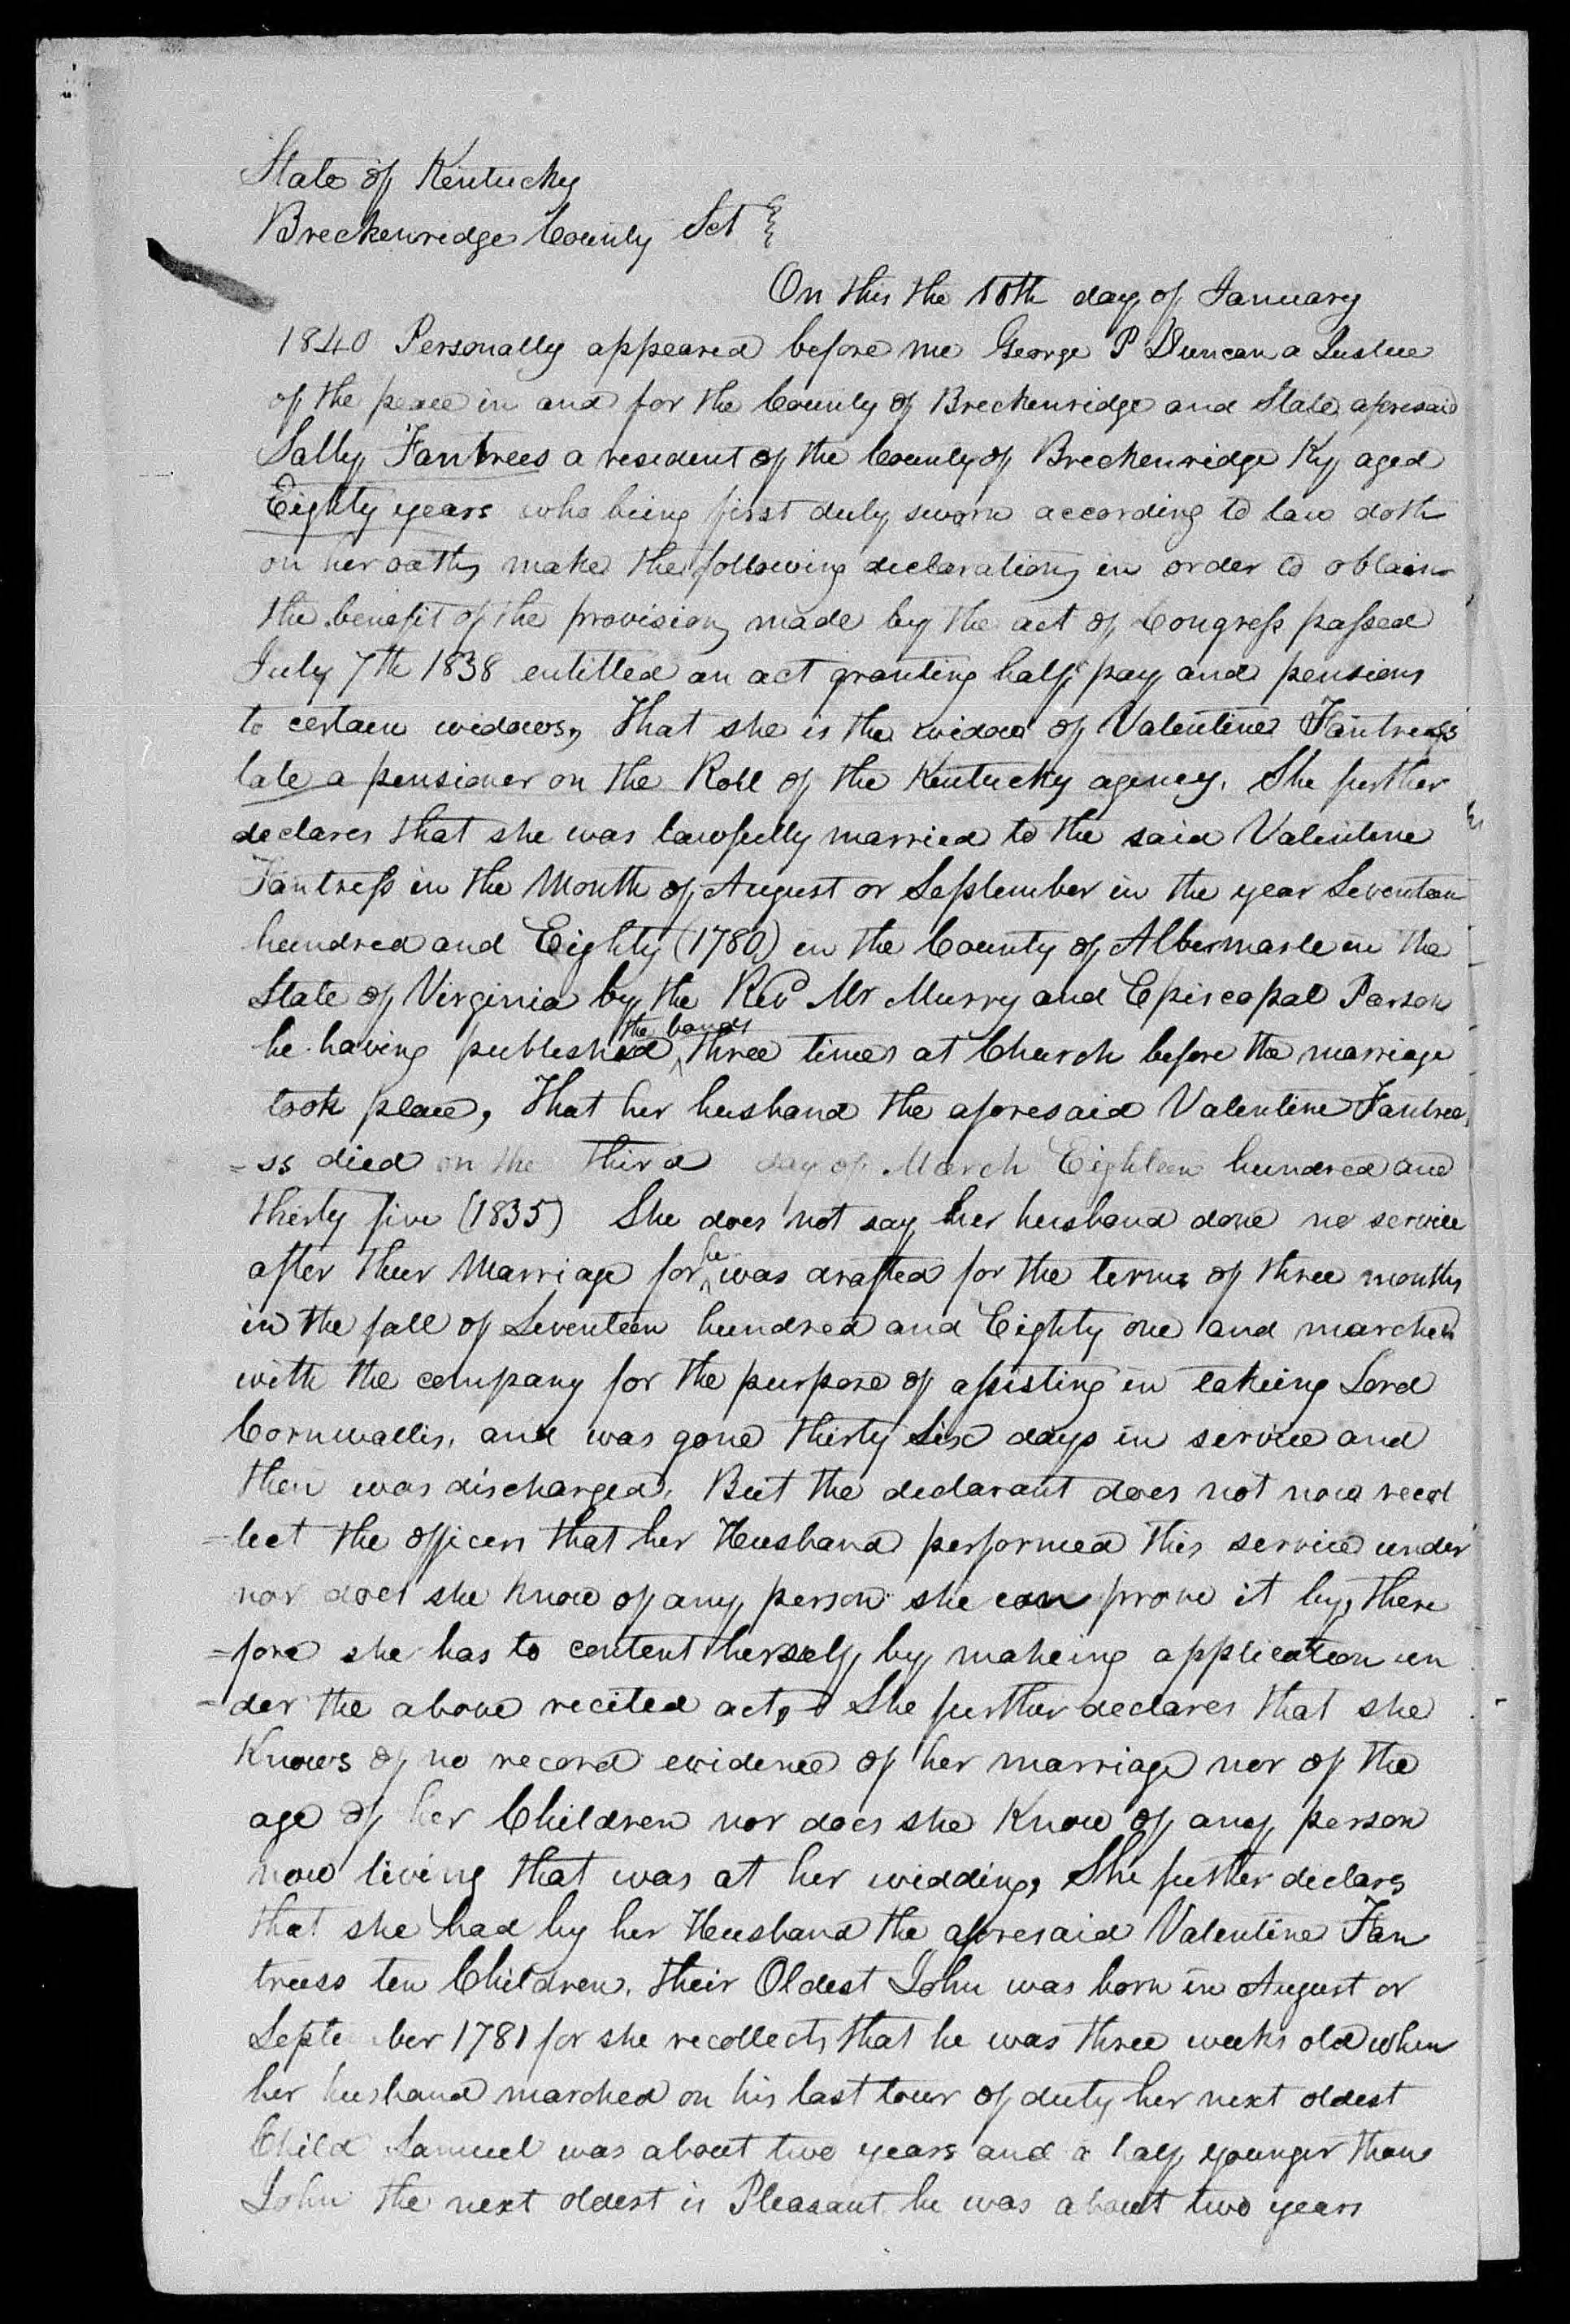 State of Kentucky
Breckenridge County Sct
On this the 10th day of January
1840 Personally appeared before me George P Duncan a Justice
of the peace in and for the County of Breckenridge and State aforesaid
Sally Fantrees a resident of the County of Breckenridge Ky aged
Eighty years who being first duly sworn according to law doth
on her oath make the following declaration in order to obtain
the benefit of the provision made by the act of Congress passed
July 7th 1838 entitled an act granting half pay and pensions
to certain widows, That she is the widow of Valentine Fantress
late a pensioner on the Roll of the Kentucky agency. She further
declares that she was lawfully married to the said Valentine
Fantress in the Month of August or September in the year Seventeen
hundred and Eighty (1780) in the County of Albermarle in the
State of Virginia by the Revd Mr Murry and Episcopal Parson
he having published the bands three times at Church before the marriage
took place, That her husband the aforesaid Valentine Fantree
=ss died on the third day of March Eighteen hundred and
thirty five (1835) She does not say her husband done no service
after their Marriage for he was drafted for the term of three months
in the fall of Seventeen hundred and Eighty one and marched
with the company for the purpose of assisting in takeing Lord
Cornwallis, and was gone thirty six days in service and
then was discharged. But the declarant does not now recol
=lect the officers that her Husband performed this service under
nor does she know of any person she can prove it by, there
=fore she has to content herself by makeing application un
=der the above recited act, She further declares that she
Knows of no record evidence of her marriage nor of the
age of her Children nor does she Know of any person
now living that was at her wedding, She further declars
that she had by her Husband the aforesaid Valentine Fan
treess ten Children. their Oldest John was born in August or
Septe ber 1781 for she recollects that he was three weeks old when
her husband marched on his last tour of duty her next oldest
Child Samuel was about two years and a half younger than
John the next oldest is Pleasant he was about two years